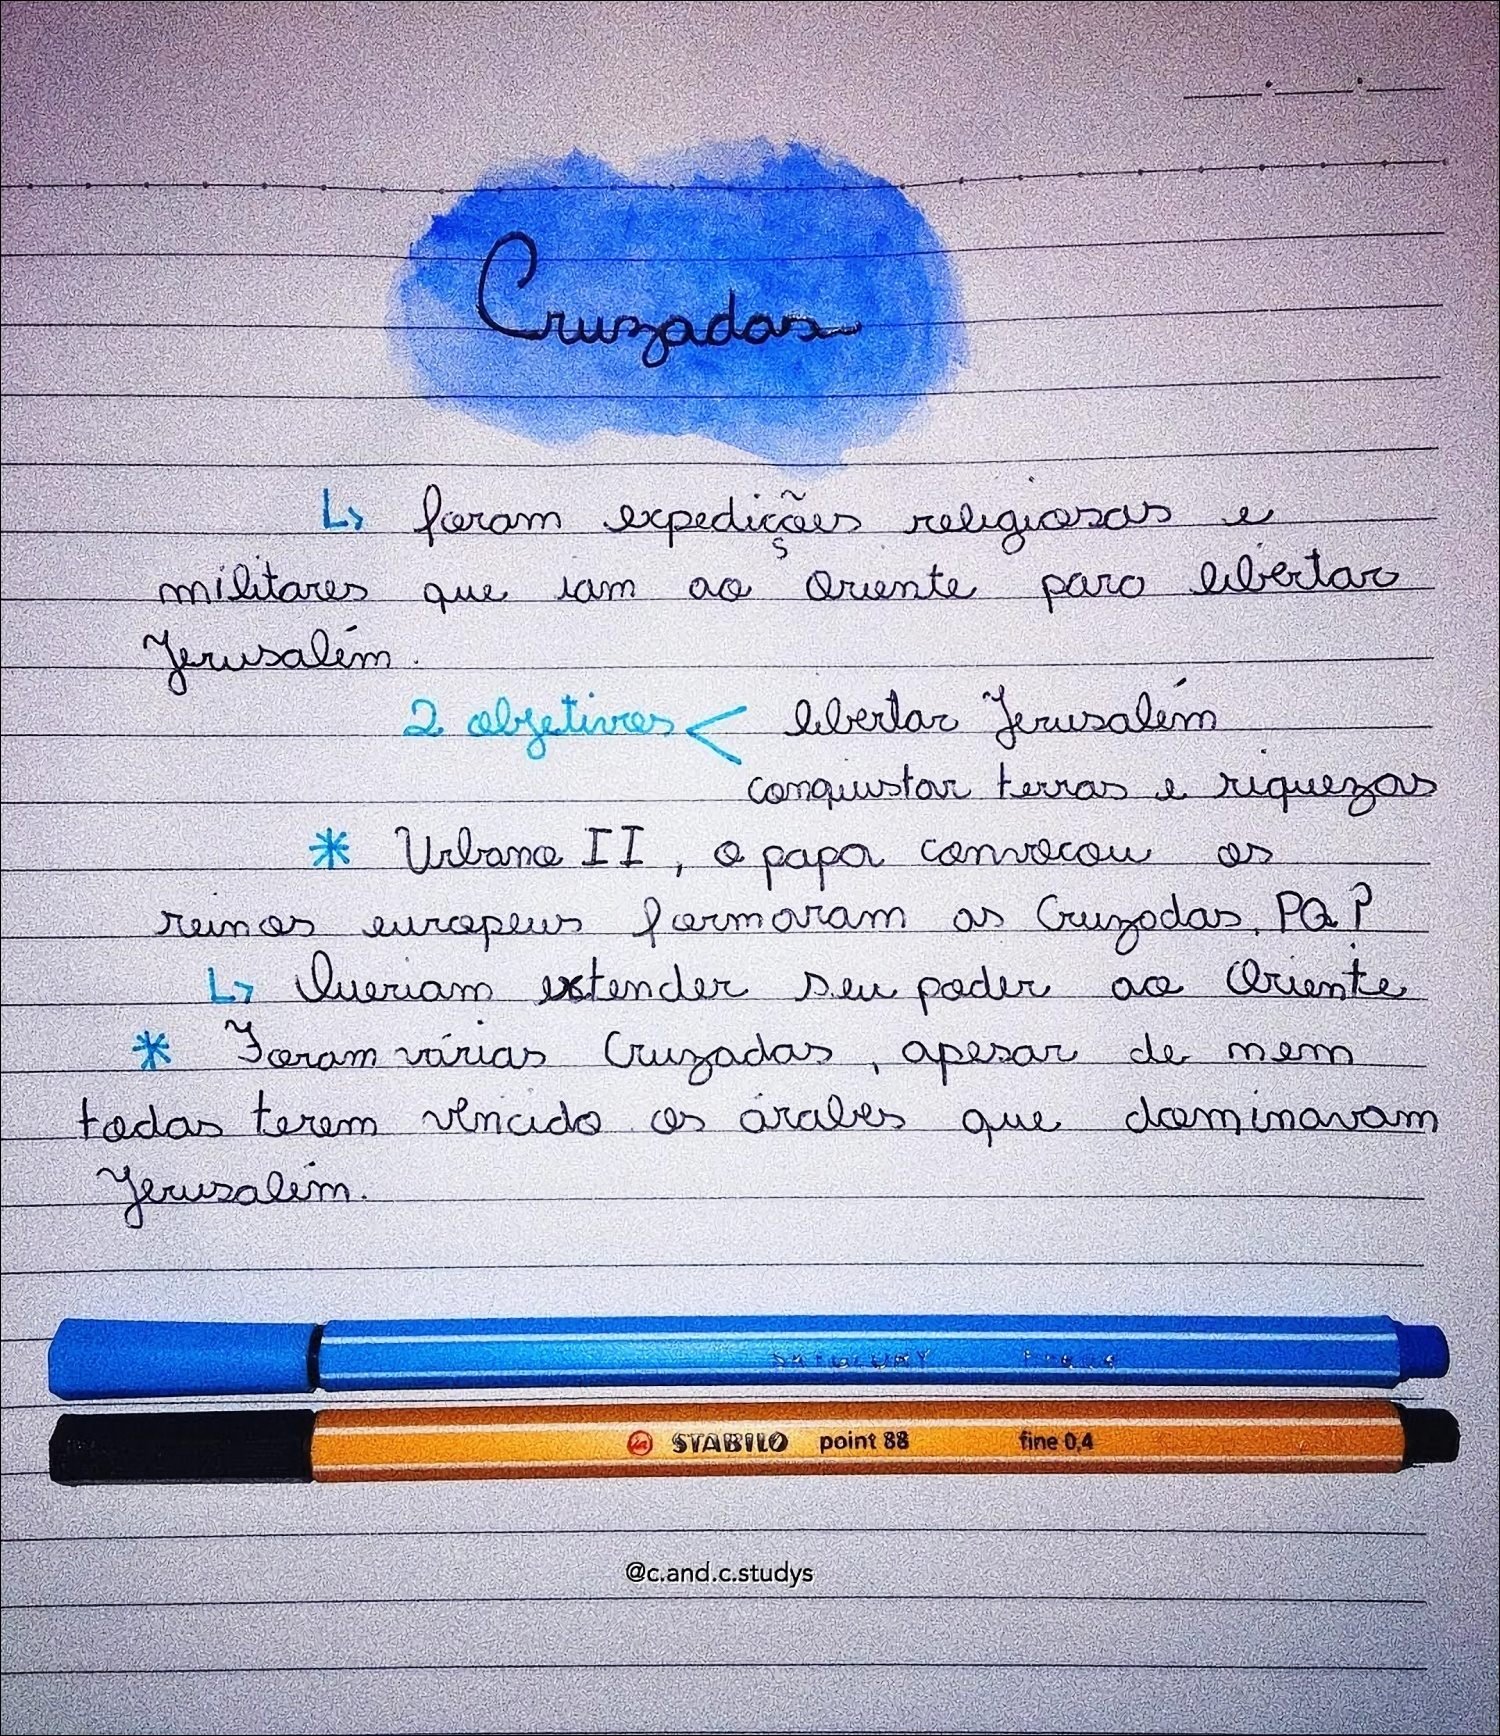 Cruzadas
↳ foram expedições religiosas e
militares que iam ao Oriente para libertar
Jerusalém.
2 objetivos < libertar Jerusalém
conquistar terras e riquezas
* Urbano II, o papa convocou os
reinos europeus formaram as Cruzadas. PQ?
↳ Queriam extender seu poder ao Oriente
* Foram várias Cruzadas, apesar de nem
todas terem vencido os árabes que dominavam
Jerusalém.
STABILO point 88 fine 0,4
@c.and.c.studys